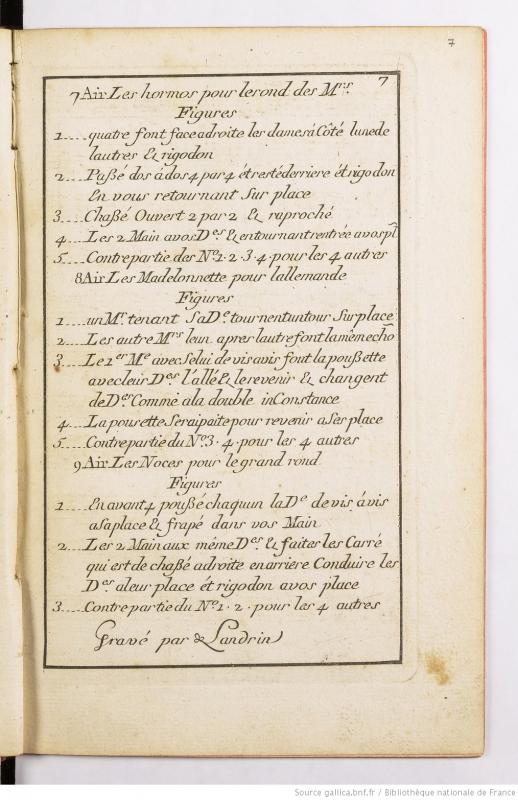 7
7
7 Air Les hormos pour lerond des Mrs.
Figures
1....quatre font face adroite les dames à Côté lune de
lautres & rigodon
2....Paßé dos à dos 4 par 4 ét resté derriere ét rigodon
En vous retournant Sur place
3....Chaßé Ouvert 2 par 2 & raproché
4....Les 2 Main avos Des. & en tournant rentrée avos pl
5....Contre partie des No. 1. 2. 3. 4. pour les 4 autres
8 Air Les Madelonnette pour lallemande
Figures
1....un Mr. tenant Sa De tournent un tour Sur place
2....Les autre Mrs leun aprer lautre font la mêm echo
3....Le 1er Me avec Selui de vis avis font la poußette
avec leur Des. l'allé & lerevenir & changent
de Des Comme ala double inConstance
4....La pousette Seraipaite pour revenir aSer place
5....Contre partie du No. 3. 4. pour les 4 autres
9 Air Les Noces pour le grand rond
Figures
1....En avant 4 poußé chaquun la De de vis à vis
asa place & frapé dans vos Main
2....Les 2 Main aux même Des. & faiter les Carré
qui est de chaßé adroite en arriere Conduire les
Des. aleur place ét rigodon avos place
3....Contre partie du No. 1. 2. pour les 4 autres
Gravé par de Landrin
Source gallica.bnf.fr / Bibliothèque nationale de France